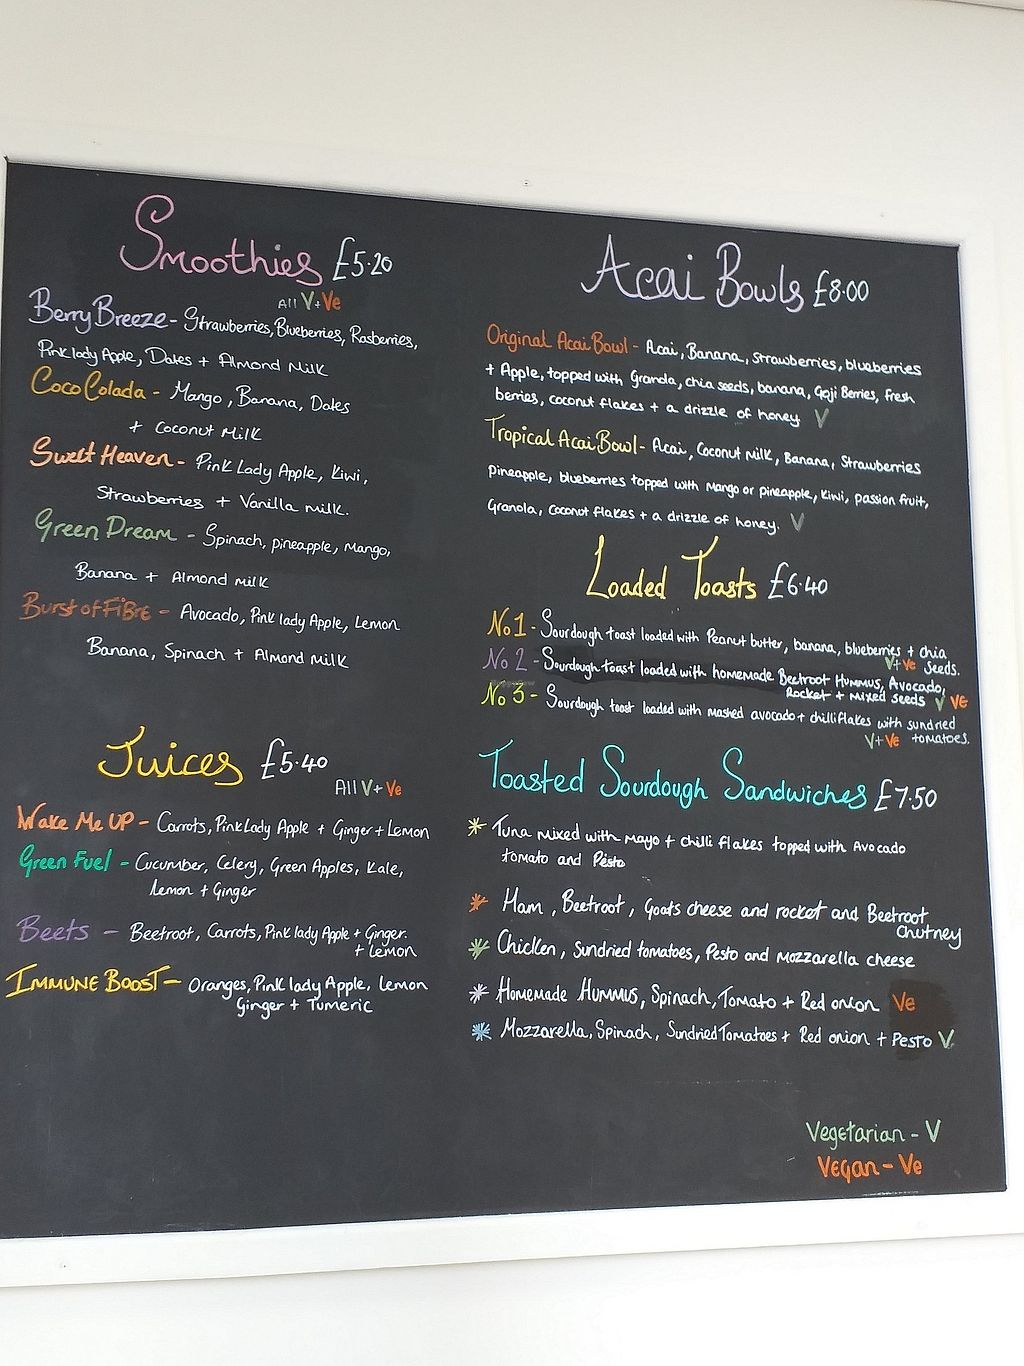 Smoothies £5·20
All V+Ve
Berry Breeze - Strawberries, Blueberries, Rasberries,
Pink lady Apple, Dates + Almond Milk
Coco Colada - Mango, Banana, Dates
+ Coconut Milk
Sweet Heaven - Pink Lady Apple, Kiwi,
Strawberries + Vanilla milk.
Green Dream - Spinach, pineapple, Mango,
Banana + Almond milk
Burst of FiBre - Avocado, Pink lady Apple, Lemon
Banana, Spinach + Almond milk
Juices £5·40
All V+Ve
Wake Me UP - Carrots, Pink Lady Apple + Ginger + Lemon
Green Fuel - Cucumber, Celery, Green Apples, Kale,
Lemon + Ginger
Beets - Beetroot, Carrots, Pink lady Apple + Ginger.
+ Lemon
IMMUNE BOOST - Oranges, Pink lady Apple, Lemon
Ginger + Tumeric
Acai Bowls £8·00
Original Acai Bowl - Acai, Banana, strawberries, blueberries
+ Apple, topped with Granola, chia seeds, banana, Goji Berries, fresh
berries, coconut flakes + a drizzle of honey V
Tropical Acai Bowl - Acai, Coconut Milk, Banana, Strawberries
Pineapple, blueberries topped with Mango or pineapple, kiwi, passion fruit,
Granola, Coconut flakes + a drizzle of honey. V
Loaded Toasts £6·40
No 1 - Sourdough toast loaded with Peanut butter, banana, blueberries + chia
V+Ve seeds.
No 2 - Sourdough toast loaded with homemade Beetroot Hummus, Avocado,
Rocket + mixed seeds V Ve
No 3 - Sourdough toast loaded with mashed avocado + chilli flakes with sundried
V+Ve tomatoes.
Toasted Sourdough Sandwiches £7·50
Tuna mixed with mayo + chilli flakes topped with Avocado
tomato and Pesto
Ham, Beetroot, Goats cheese and rocket and Beetroot
Chutney
Chicken, Sundried tomatoes, Pesto and Mozzarella cheese
Homemade Hummus, Spinach, Tomato + Red onion Ve
Mozzarella, Spinach, Sundried Tomatoes + Red onion + Pesto V
Vegetarian - V
Vegan - Ve